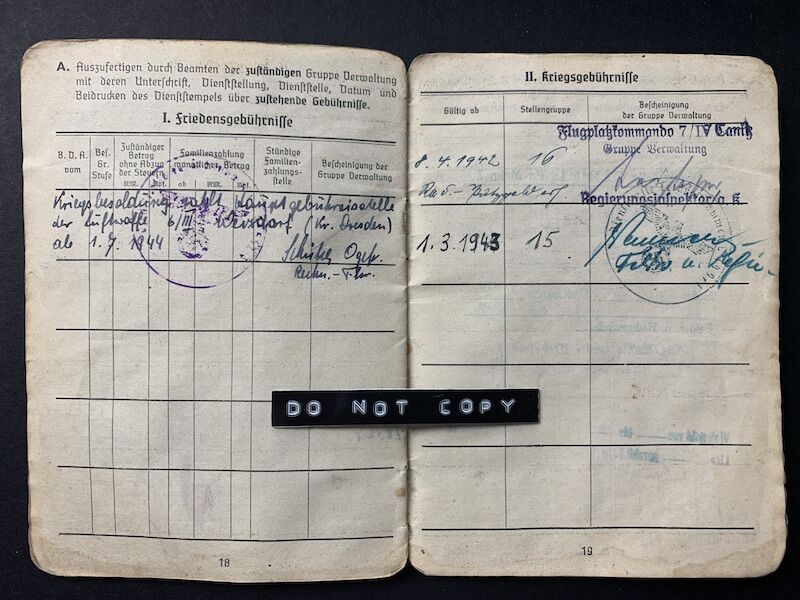 A. Auszufertigen durch Beamten der zuständigen Gruppe Verwaltung
mit deren Unterschrift, Dienststellung, Dienststelle, Datum und
Beidrucken des Dienststempels über zustehende Gebührnisse.
I. Friedensgebührnisse
B. D. A. vom
Bes. Gr. Stufe
Zuständiger Betrag ohne Abzug der Steuern RM.
Familienzahlung monatlicher Betrag
ab RM.
Ständige Familienzahlungsstelle
Bescheinigung der Gruppe Verwaltung
Kriegsbesoldung zahlt Hauptgebührnisstelle
der Luftwaffe 6/III (Kr. Dresden)
ab 1. 7. 1944
Ogefr.
18
II. Kriegsgebührnisse
Gültig ab
Stellengruppe
Bescheinigung der Gruppe Verwaltung
Flugplatzkommando 7/IV Canitz
Gruppe Verwaltung
8. 4. 1942 16
Regierungsinspektor a. K.
1. 3. 1943 15
19
DO NOT COPY